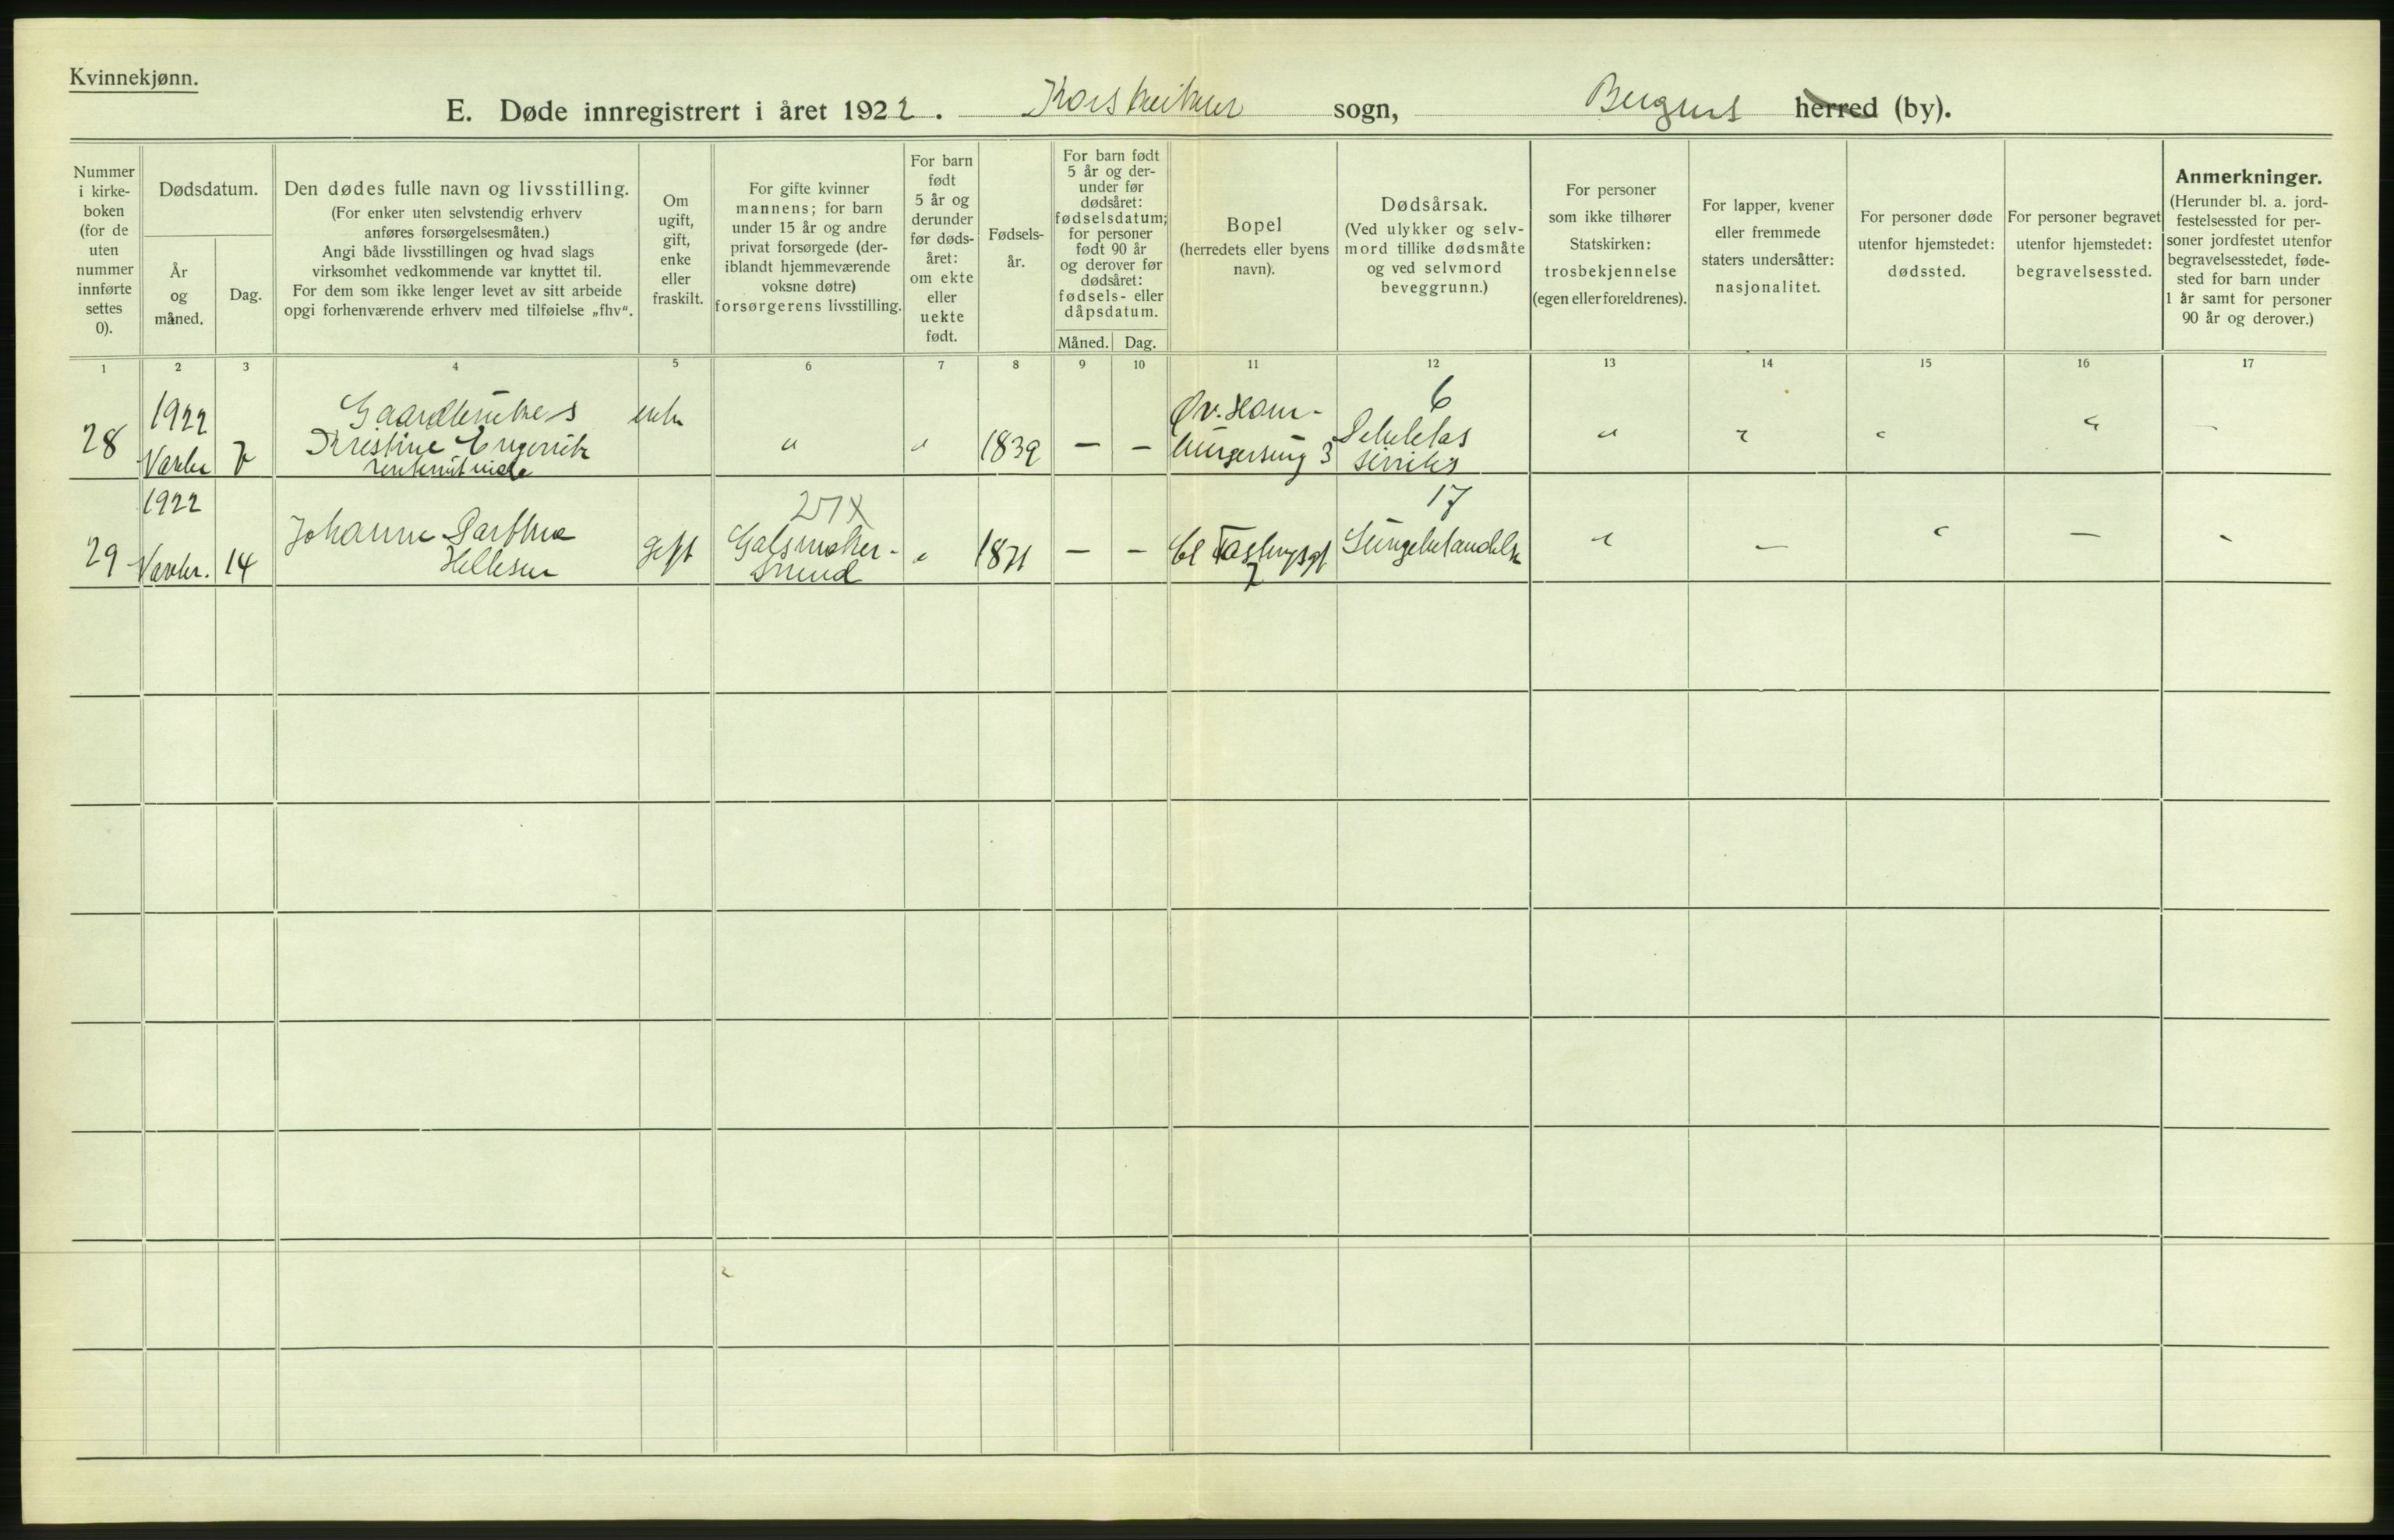 Kvinnekjønn.
E. Døde innregistrert i året 1922. Korskirkens sogn, Bergens herred (by).
Nummer
i kirke-
boken
(for de
uten
nummer
innførte
settes
0).
Dødsdatum.
År
og
måned.
Dag.
Den dødes fulle navn og livsstilling.
(For enker uten selvstendig erhverv
anføres forsørgelsesmåten.)
Angi både livsstillingen og hvad slags
virksomhet vedkommende var knyttet til.
For dem som ikke lenger levet av sitt arbeide
opgi forhenværende erhverv med tilføielse „fhv“.
Om
ugift,
gift,
enke
eller
fraskilt.
For gifte kvinner
mannens; for barn
under 15 år og andre
privat forsørgede (der-
iblandt hjemmeværende
voksne døtre)
forsørgerens livsstilling.
For barn
født
5 år og
derunder
før døds-
året:
om ekte
eller
uekte
født.
Fødsels-
år.
For barn født
5 år og der-
under før
dødsåret:
fødselsdatum;
for personer
født 90 år
og derover før
dødsåret:
fødsels- eller
dåpsdatum.
Måned. Dag.
Bopel
(herredets eller byens
navn).
Dødsårsak.
(Ved ulykker og selv-
mord tillike dødsmåte
og ved selvmord
beveggrunn.)
For personer
som ikke tilhører
Statskirken:
trosbekjennelse
(egen eller foreldrenes).
For lapper, kvener
eller fremmede
staters undersåtter:
nasjonalitet.
For personer døde
utenfor hjemstedet:
dødssted.
For personer begravet
utenfor hjemstedet:
begravelsessted.
Anmerkninger.
(Herunder bl. a. jord-
festelsessted for per-
soner jordfestet utenfor
begravelsesstedet, føde-
sted for barn under
1 år samt for personer
90 år og derover.)
1 2 3 4 5 6 7 8 9 10 11 12 13 14 15 16 17
28
1922
Novbr 7
Kristine
enke
" "
1839
— —
Øv. Ham-
3
6
senilis
" " " " —
29
1922
Novbr. 14
Johanne
Hellesen
gift
Svend
"
1871
— —
2
17
Lungebetændelse
" — " — -